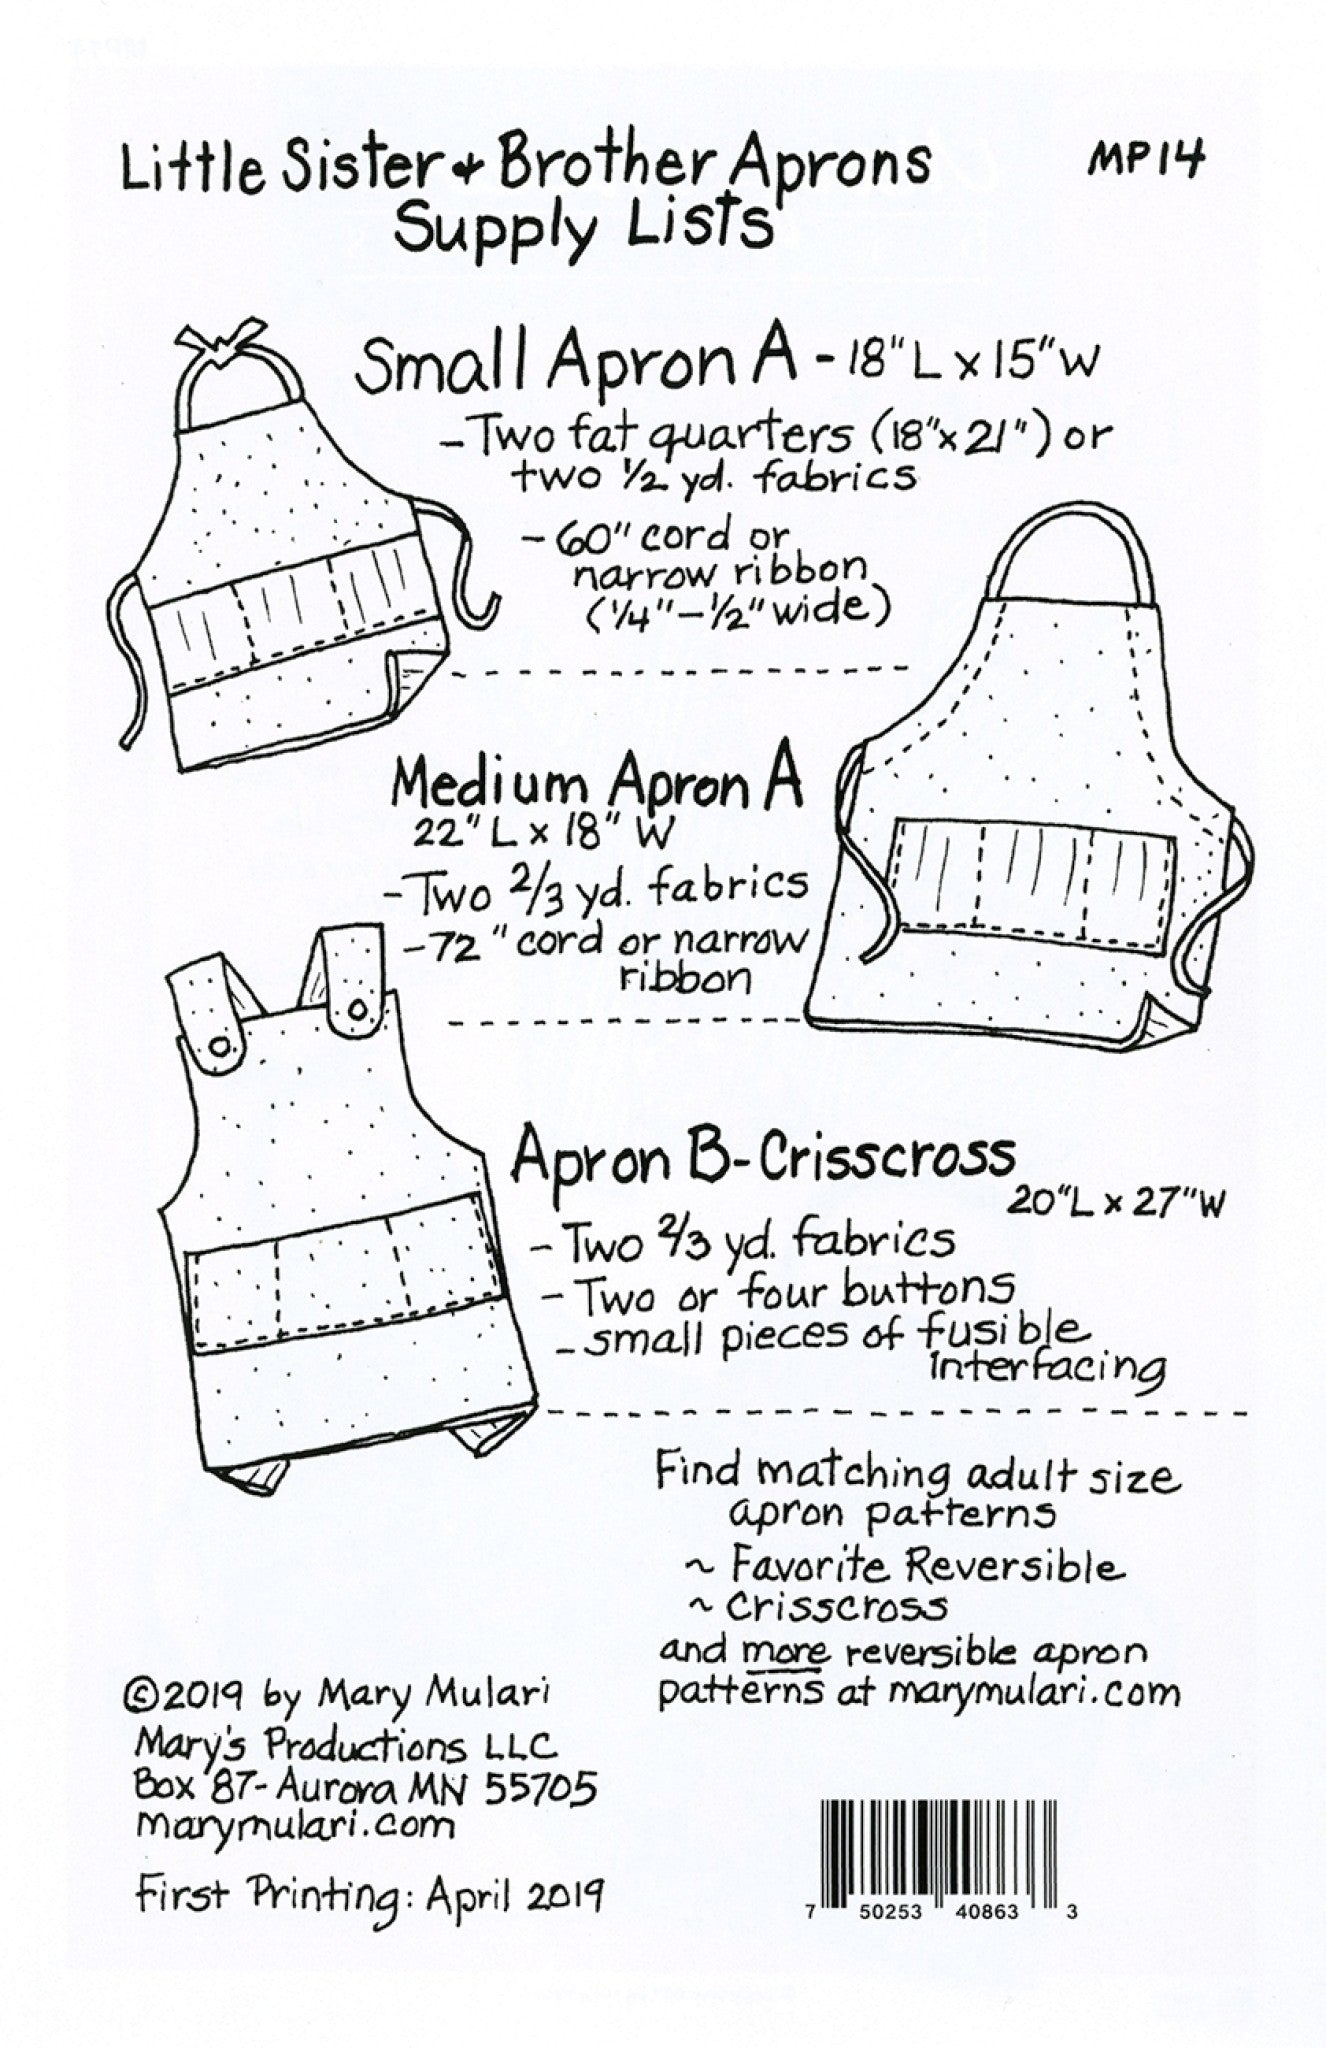 Little Sister & Brother Aprons
Supply Lists
MP14
Small Apron A - 18" L x 15" W
- Two fat quarters (18" x 21") or
two 1/2 yd. fabrics
- 60" cord or
narrow ribbon
(1/4" - 1/2" wide)
Medium Apron A
22" L x 18" W
- Two 2/3 yd. fabrics
- 72" cord or narrow
ribbon
Apron B - Crisscross
20" L x 27" W
- Two 2/3 yd. fabrics
- Two or four buttons
- small pieces of fusible
interfacing
Find matching adult size
apron patterns
~ Favorite Reversible
~ Crisscross
and more reversible apron
patterns at marymulari.com
©2019 by Mary Mulari
Mary's Productions LLC
Box 87 - Aurora MN 55705
marymulari.com
First Printing: April 2019
7 50253 40863 3